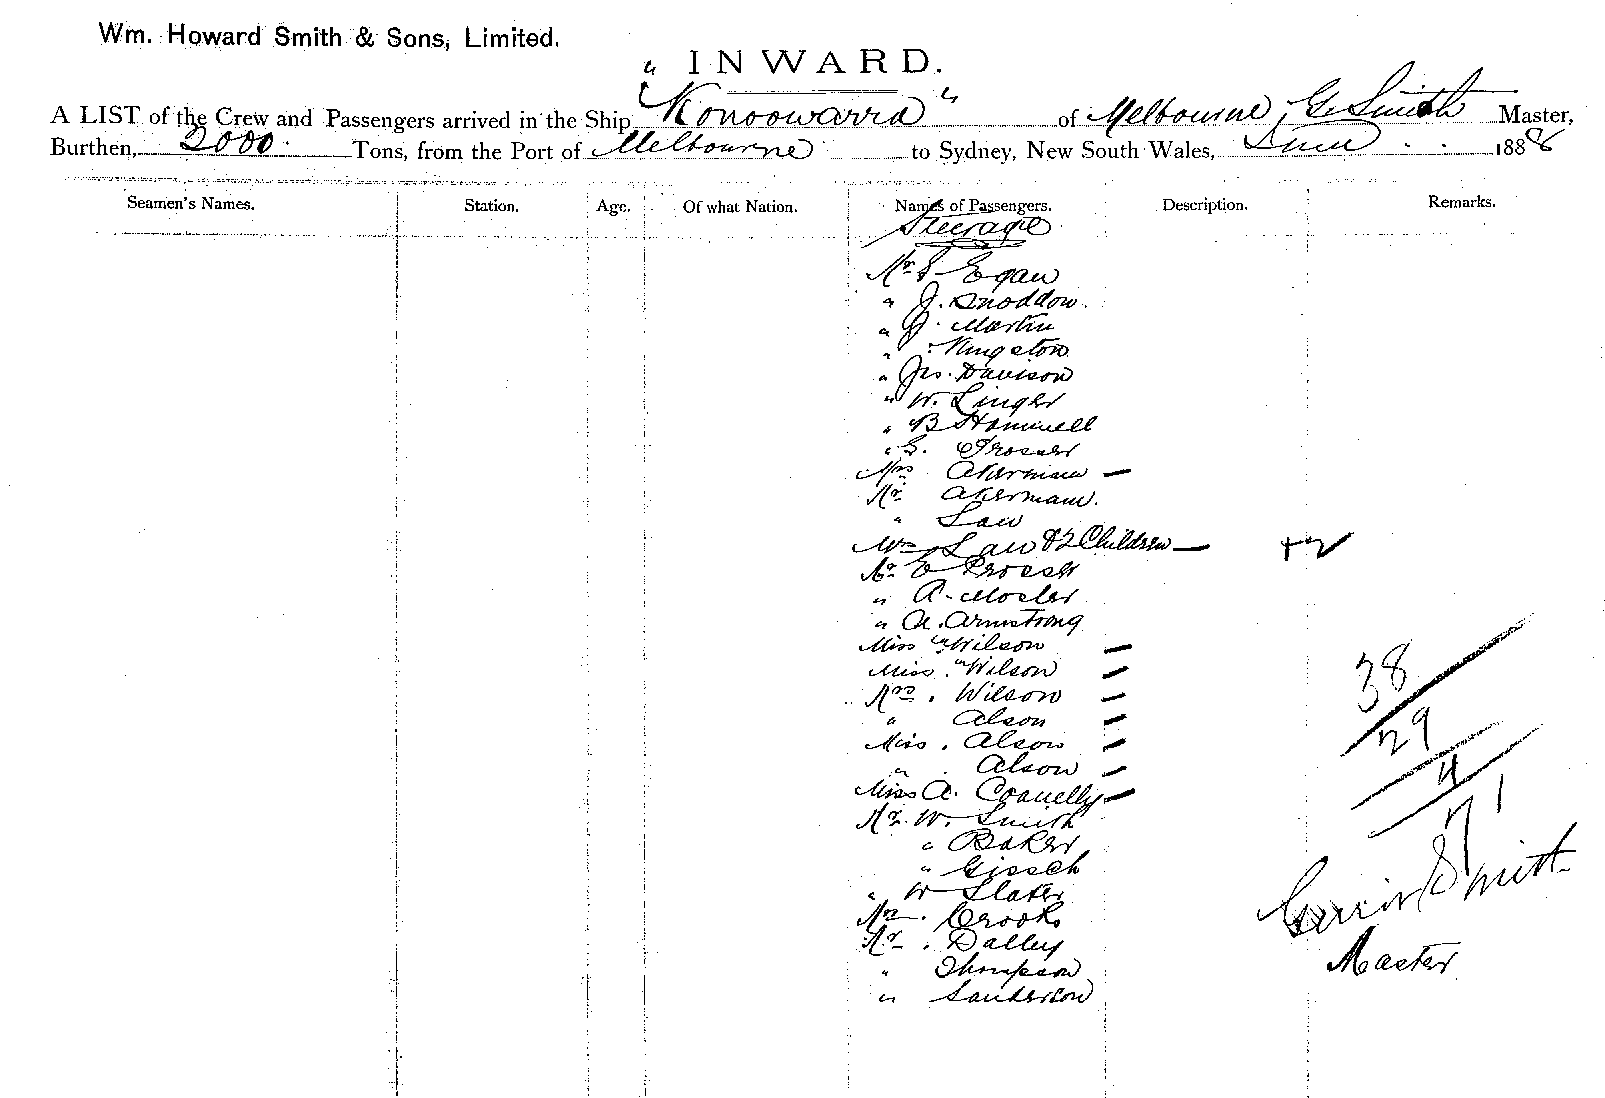 Wm. Howard Smith & Sons, Limited.
INWARD.
A LIST of the Crew and Passengers arrived in the Ship "Konoowarra" of Melbourne, G. Smith Master,
Burthen, 2000 Tons, from the Port of Melbourne to Sydney, New South Wales, 1888
Seamen's Names. Station. Age. Of what Nation. Names of Passengers. Description. Remarks.
Steerage
Mr Egan
" J. Snoddon
" J. Martin
" Kingston
" Jas. Davison
" W. Linger
" B Hammell
" G. Prosser
Mrs Akerman —
Mr Akerman
" Law
Mrs Law & 2 Children — +2
Mr E Prosser
" A. Mosler
" A. Armstrong
Miss " Wilson —
Miss " Wilson —
Mrs. Wilson —
" Alson —
Miss. Alson —
" Alson —
Miss A. Connelly —
Mr. W. Smith
" Baker
" Gissch
" W Slater
Mrs. Crooks
Mr. Dalley
" Thompson
" Sanderson
38
29
4
71
Smith
Master